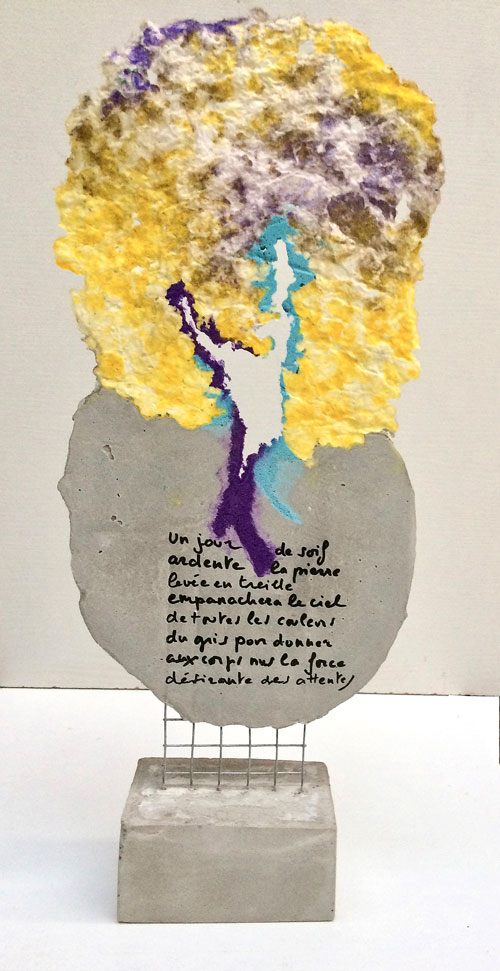 un jour de soif
ardente la pierre
levée en treille
empanachera le ciel
de toutes les couleurs
du gris pour donner
aux corps nus la force
désirante des attentes